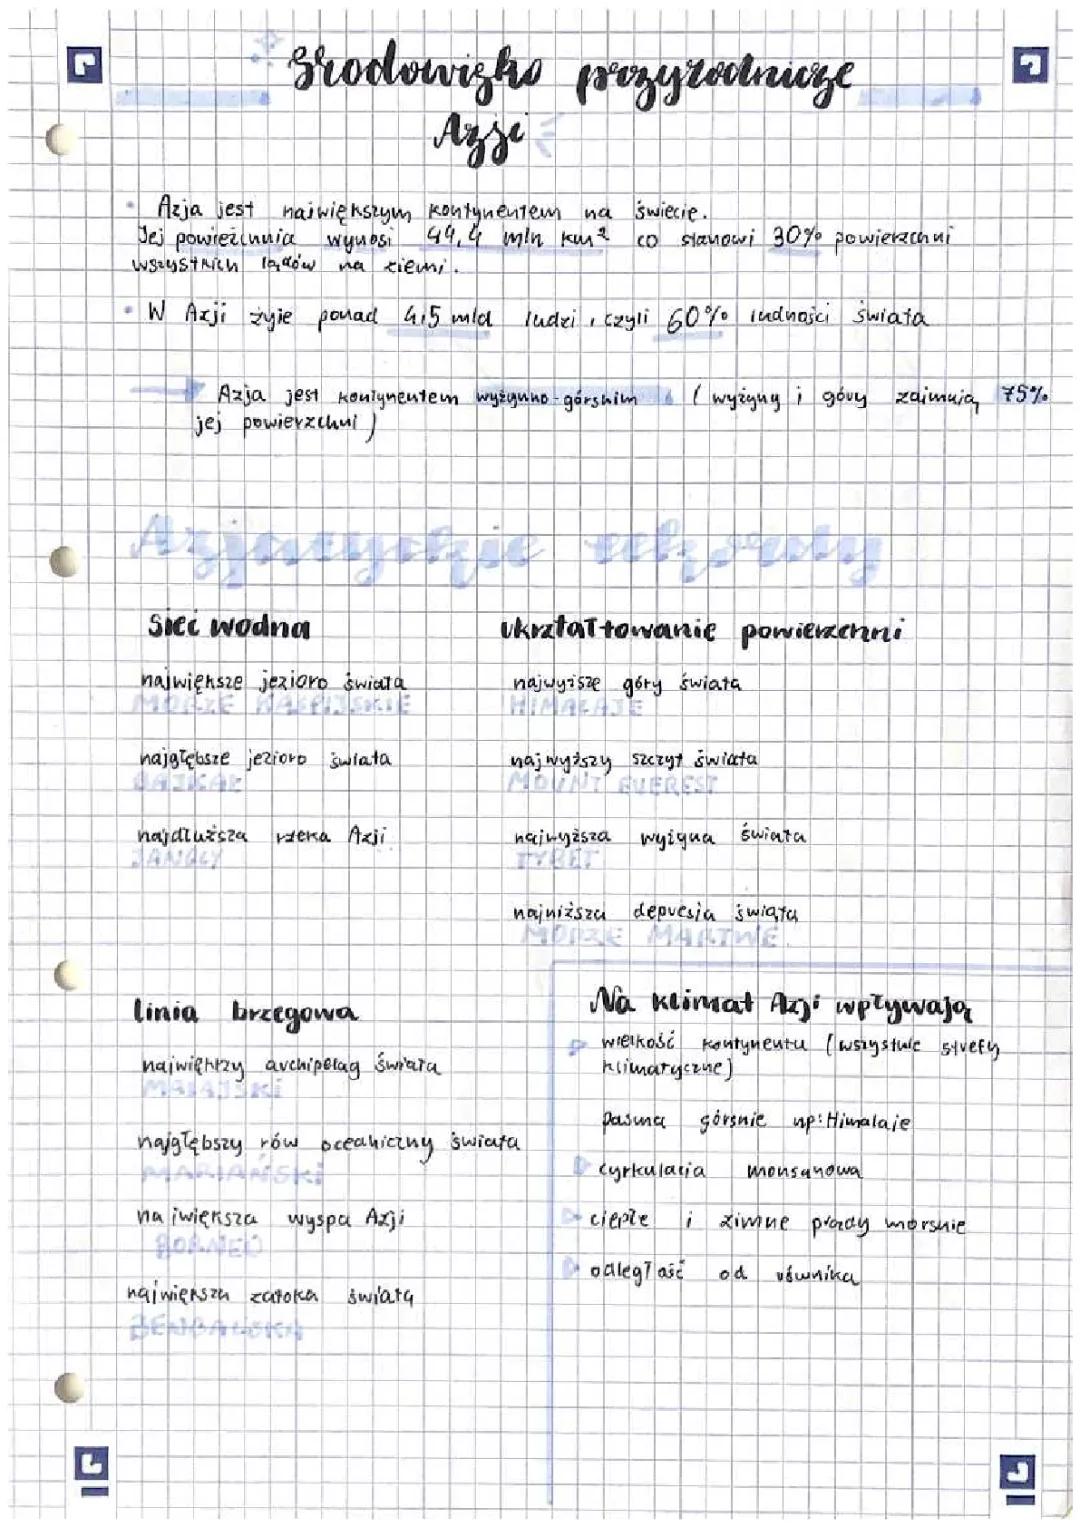 Środowisko przyrodnicze
Azji
Azja jest największym kontynentem na świecie.
Jej powierzchnia wynosi 44,4 mln km² co stanowi 30% powierzchni
wszystkich lądów na ziemi.
W Azji żyje ponad 4,5 mld ludzi, czyli 60% ludności świata
Azja jest kontynentem wyżynno-górskim (wyżyny i góry zajmują 75%
jej powierzchni)
Azjatyckie rekordy
sieć wodna
największe jezioro świata
MORZE KASPIJSKIE
najgłębsze jezioro świata
BAJKAŁ
najdłuższa rzeka Azji
JANGCY
ukształtowanie powierzchni
najwyższe góry świata
HIMALAJE
najwyższy szczyt świata
MOUNT EVEREST
najwyższa wyżyna świata
TYBET
najniższa depresja świata
MORZE MARTWE
linia brzegowa
największy archipelag świata
MALAJSKI
najgłębszy rów oceaniczny świata
MARIAŃSKI
największa wyspa Azji
BORNEO
największa zatoka świata
BENGALSKA
Na klimat Azji wpływają
wielkość kontynentu (wszystkie strefy
klimatyczne)
pasma górskie np: Himalaje
cyrkulacja monsunowa
ciepłe i zimne prądy morskie
odległość od równika